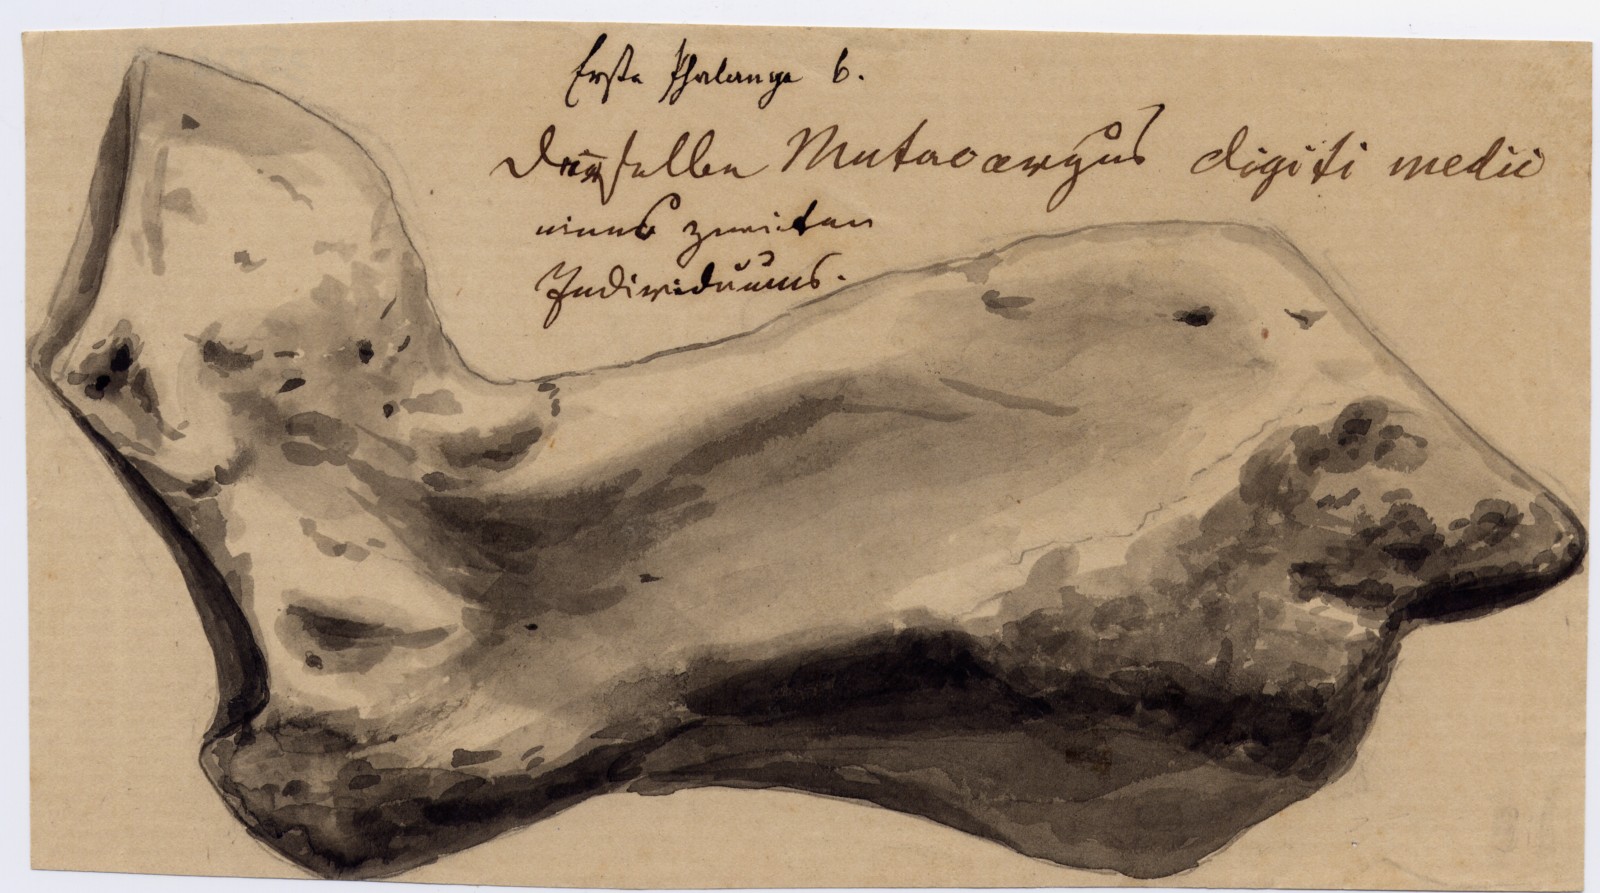 Erste Phalange 6.
Desselben Metacarpus digiti medii
eines zweiten
Individuums.